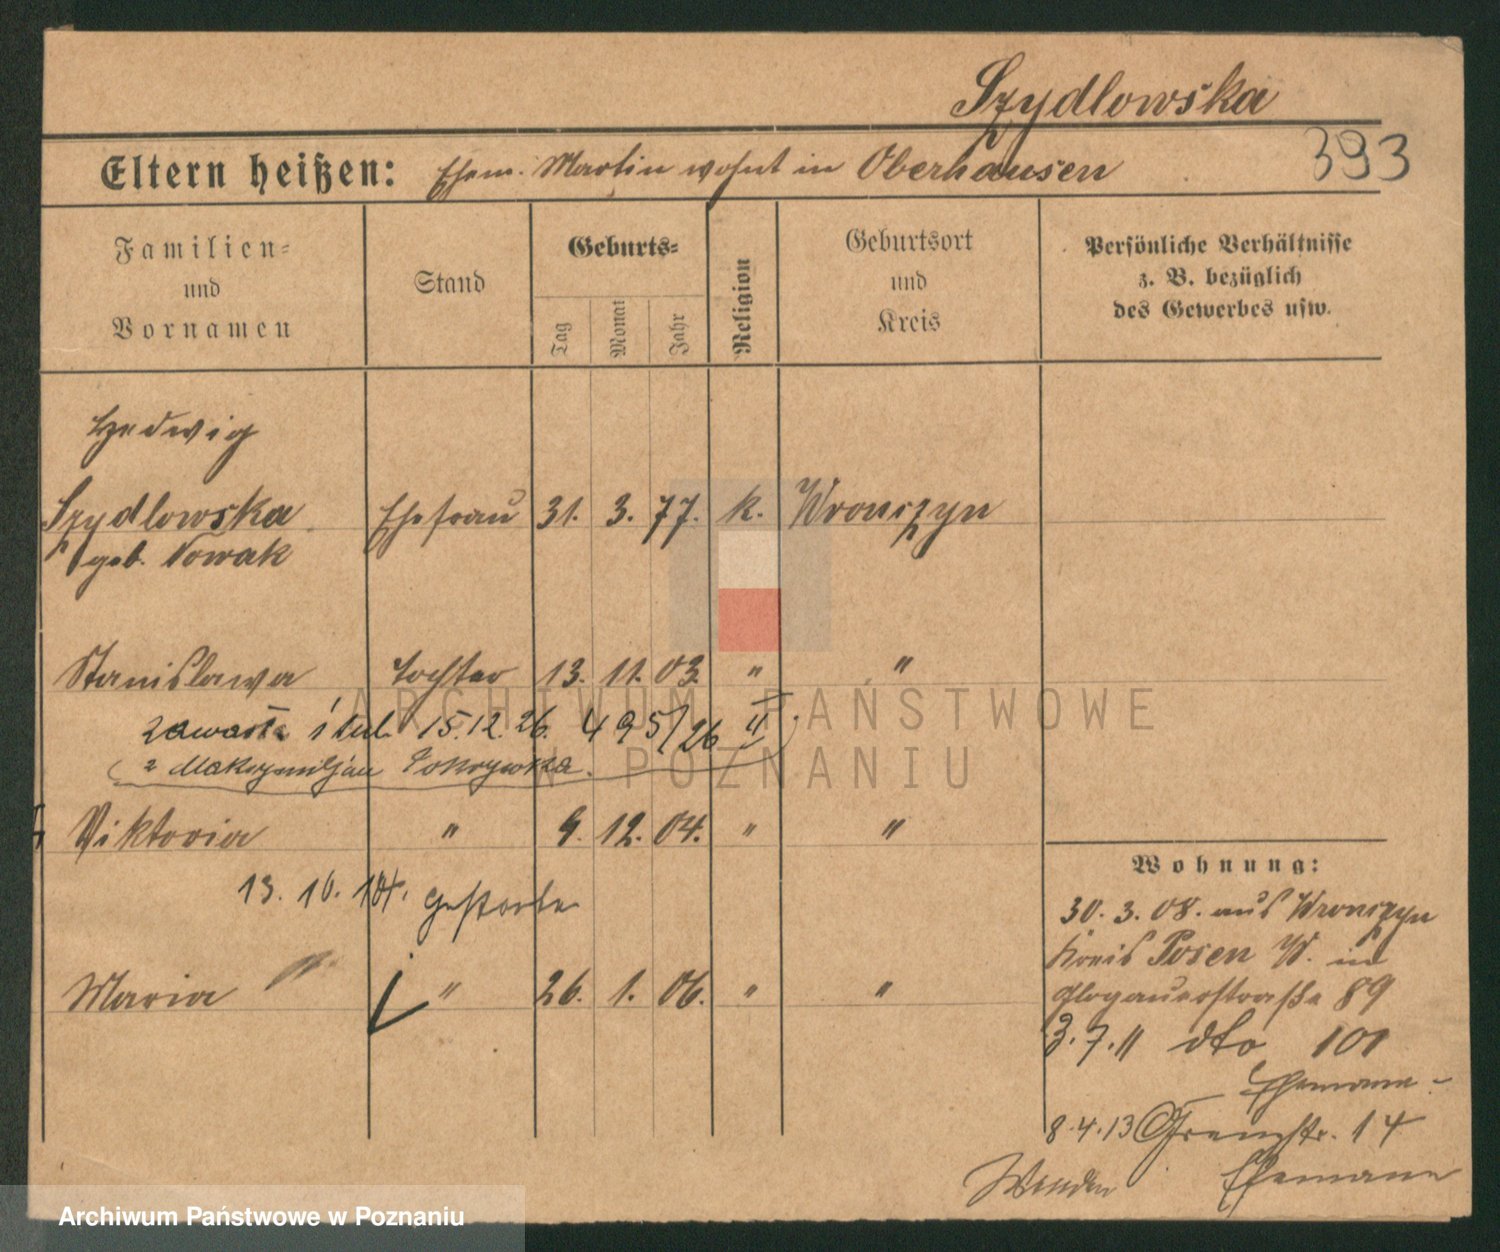 Szydlowska
393
Eltern heißen: Ehem. Martin wohnt in Oberhausen
Familien-
und
Vornamen
Stand
Geburts-
Tag
Monat
Jahr
Religion
Geburtsort
und
Kreis
Persönliche Verhältnisse
z. B. bezüglich
des Gewerbes usw.
Hedwig
Szydlowska Ehefrau 31. 3. 77. k. Wronczyn
geb. Nowak
Stanislawa Tochter 13. 11. 03. " "
zawarła ślub 15.12.26. 495/26 II
z Maksymiljan
Viktoria " 9. 12. 04. " "
13. 10. 14. gestorben
Maria " 26. 1. 06. " "
Wohnung:
30. 3. 08. aus Wronczyn
Kreis Posen W. in
Glogauerstraße 89
3. 7. 11 dto 101
Ehemann
8.4.13 Grenzstr. 14
Wenden Ehemann
ARCHIWUM PAŃSTWOWE
W POZNANIU
Archiwum Państwowe w Poznaniu